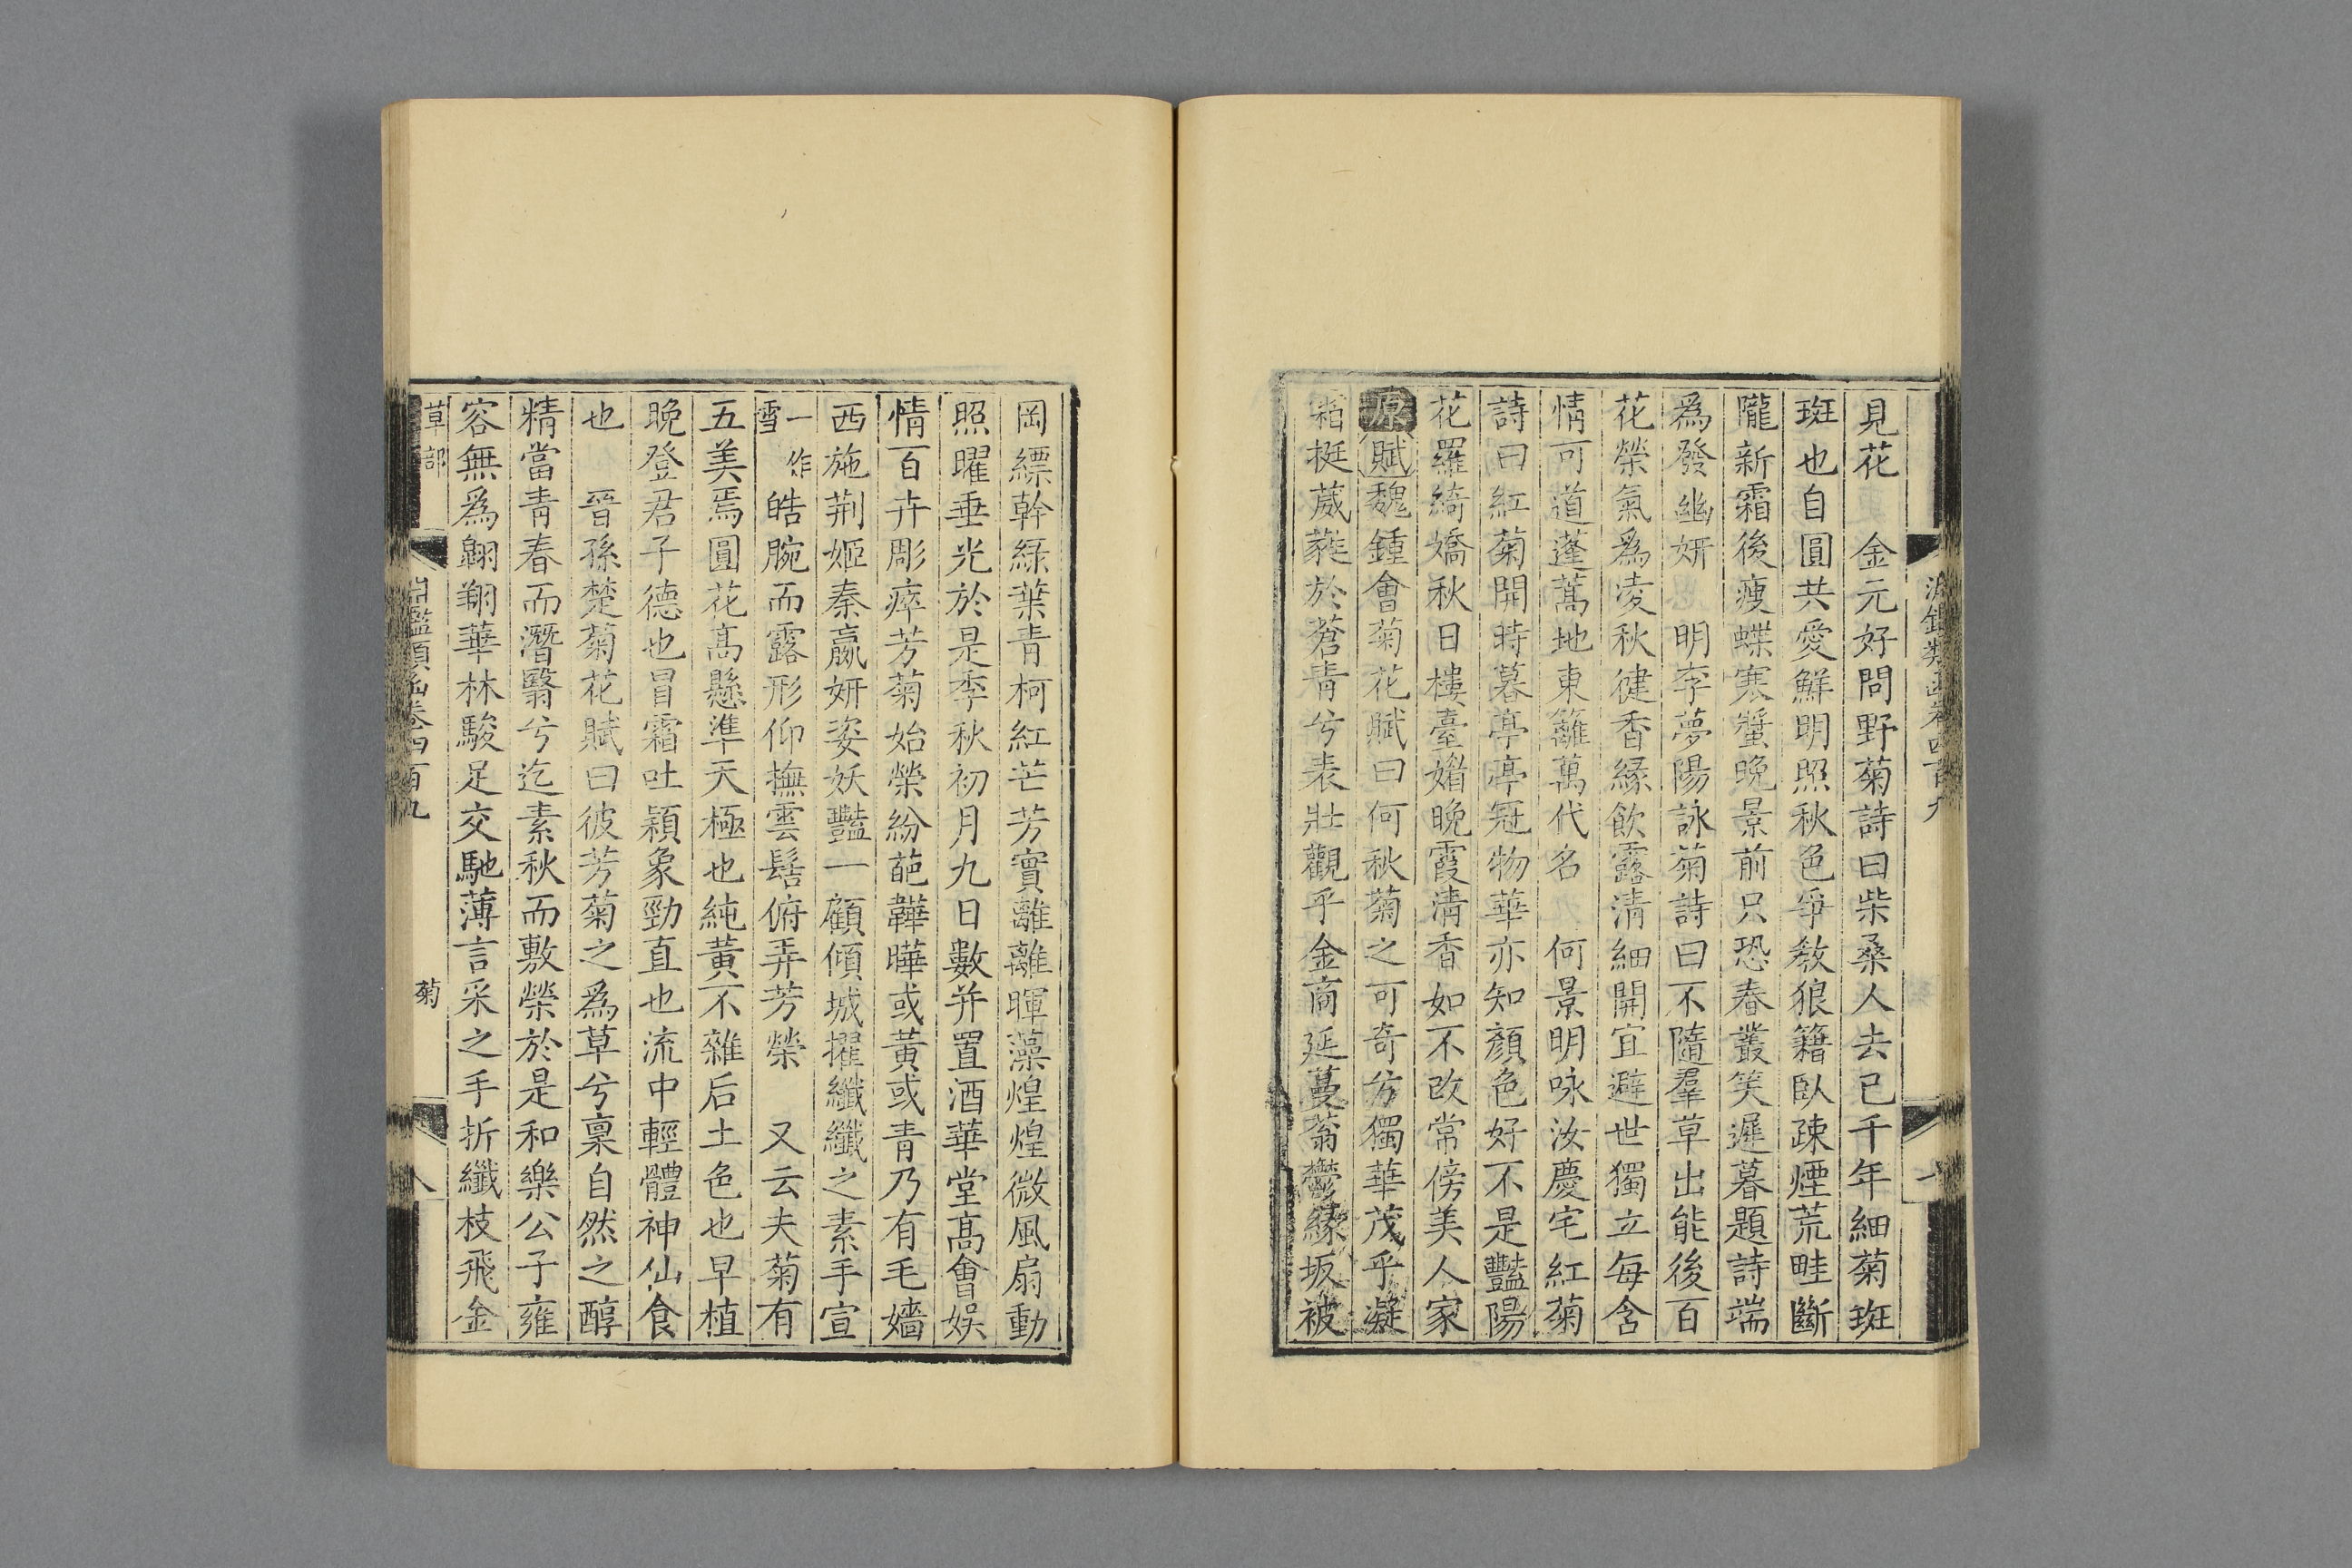 見花　金元好問野菊詩曰柴桑人去已千年細菊斑
斑也自圓共愛鮮明照秋色爭教狼籍臥疎煙荒畦斷
隴新霜後瘦蝶寒螿晚景前只恐春叢笑遲暮題詩端
為發幽妍　明李夢陽詠菊詩曰不隨羣草出能後百
花榮氣為凌秋健香緣飲露清細開宜避世獨立每含
情可道蓬蒿地東籬萬代名　何景明咏汝慶宅紅菊
詩曰紅菊開時暮亭亭冠物華亦知顏色好不是豔陽
花羅綺嬌秋日樓臺媚晚霞清香如不改常傍美人家
原賦魏鍾會菊花賦曰何秋菊之可奇兮獨華茂乎凝
霜挺葳蕤於蒼青兮表壯觀乎金商延蔓蓊鬱緣坂被
岡縹幹綠葉青柯紅芒芳實離離暉藻煌煌微風扇動
照曜垂光於是季秋初月九日數并置酒華堂高會娛
情百卉彫瘁芳菊始榮紛葩韡曄或黃或青乃有毛嬙
西施荆姬秦嬴妍姿妖豔一顧傾城擢纖纖之素手宣
一作雪皓腕而露形仰撫雲髻俯弄芳榮　又云夫菊有
五美焉圓花高懸準天極也純黃不雜后土色也早植
晚登君子德也冒霜吐穎象勁直也流中輕體神仙食
也　晉孫楚菊花賦曰彼芳菊之為草兮稟自然之醇
精當青春而潛翳兮迄素秋而敷榮於是和樂公子雍
容無為翱翔華林駿足交馳薄言采之手折纖枝飛金
草部
淵鑑類函卷四百九
菊
八